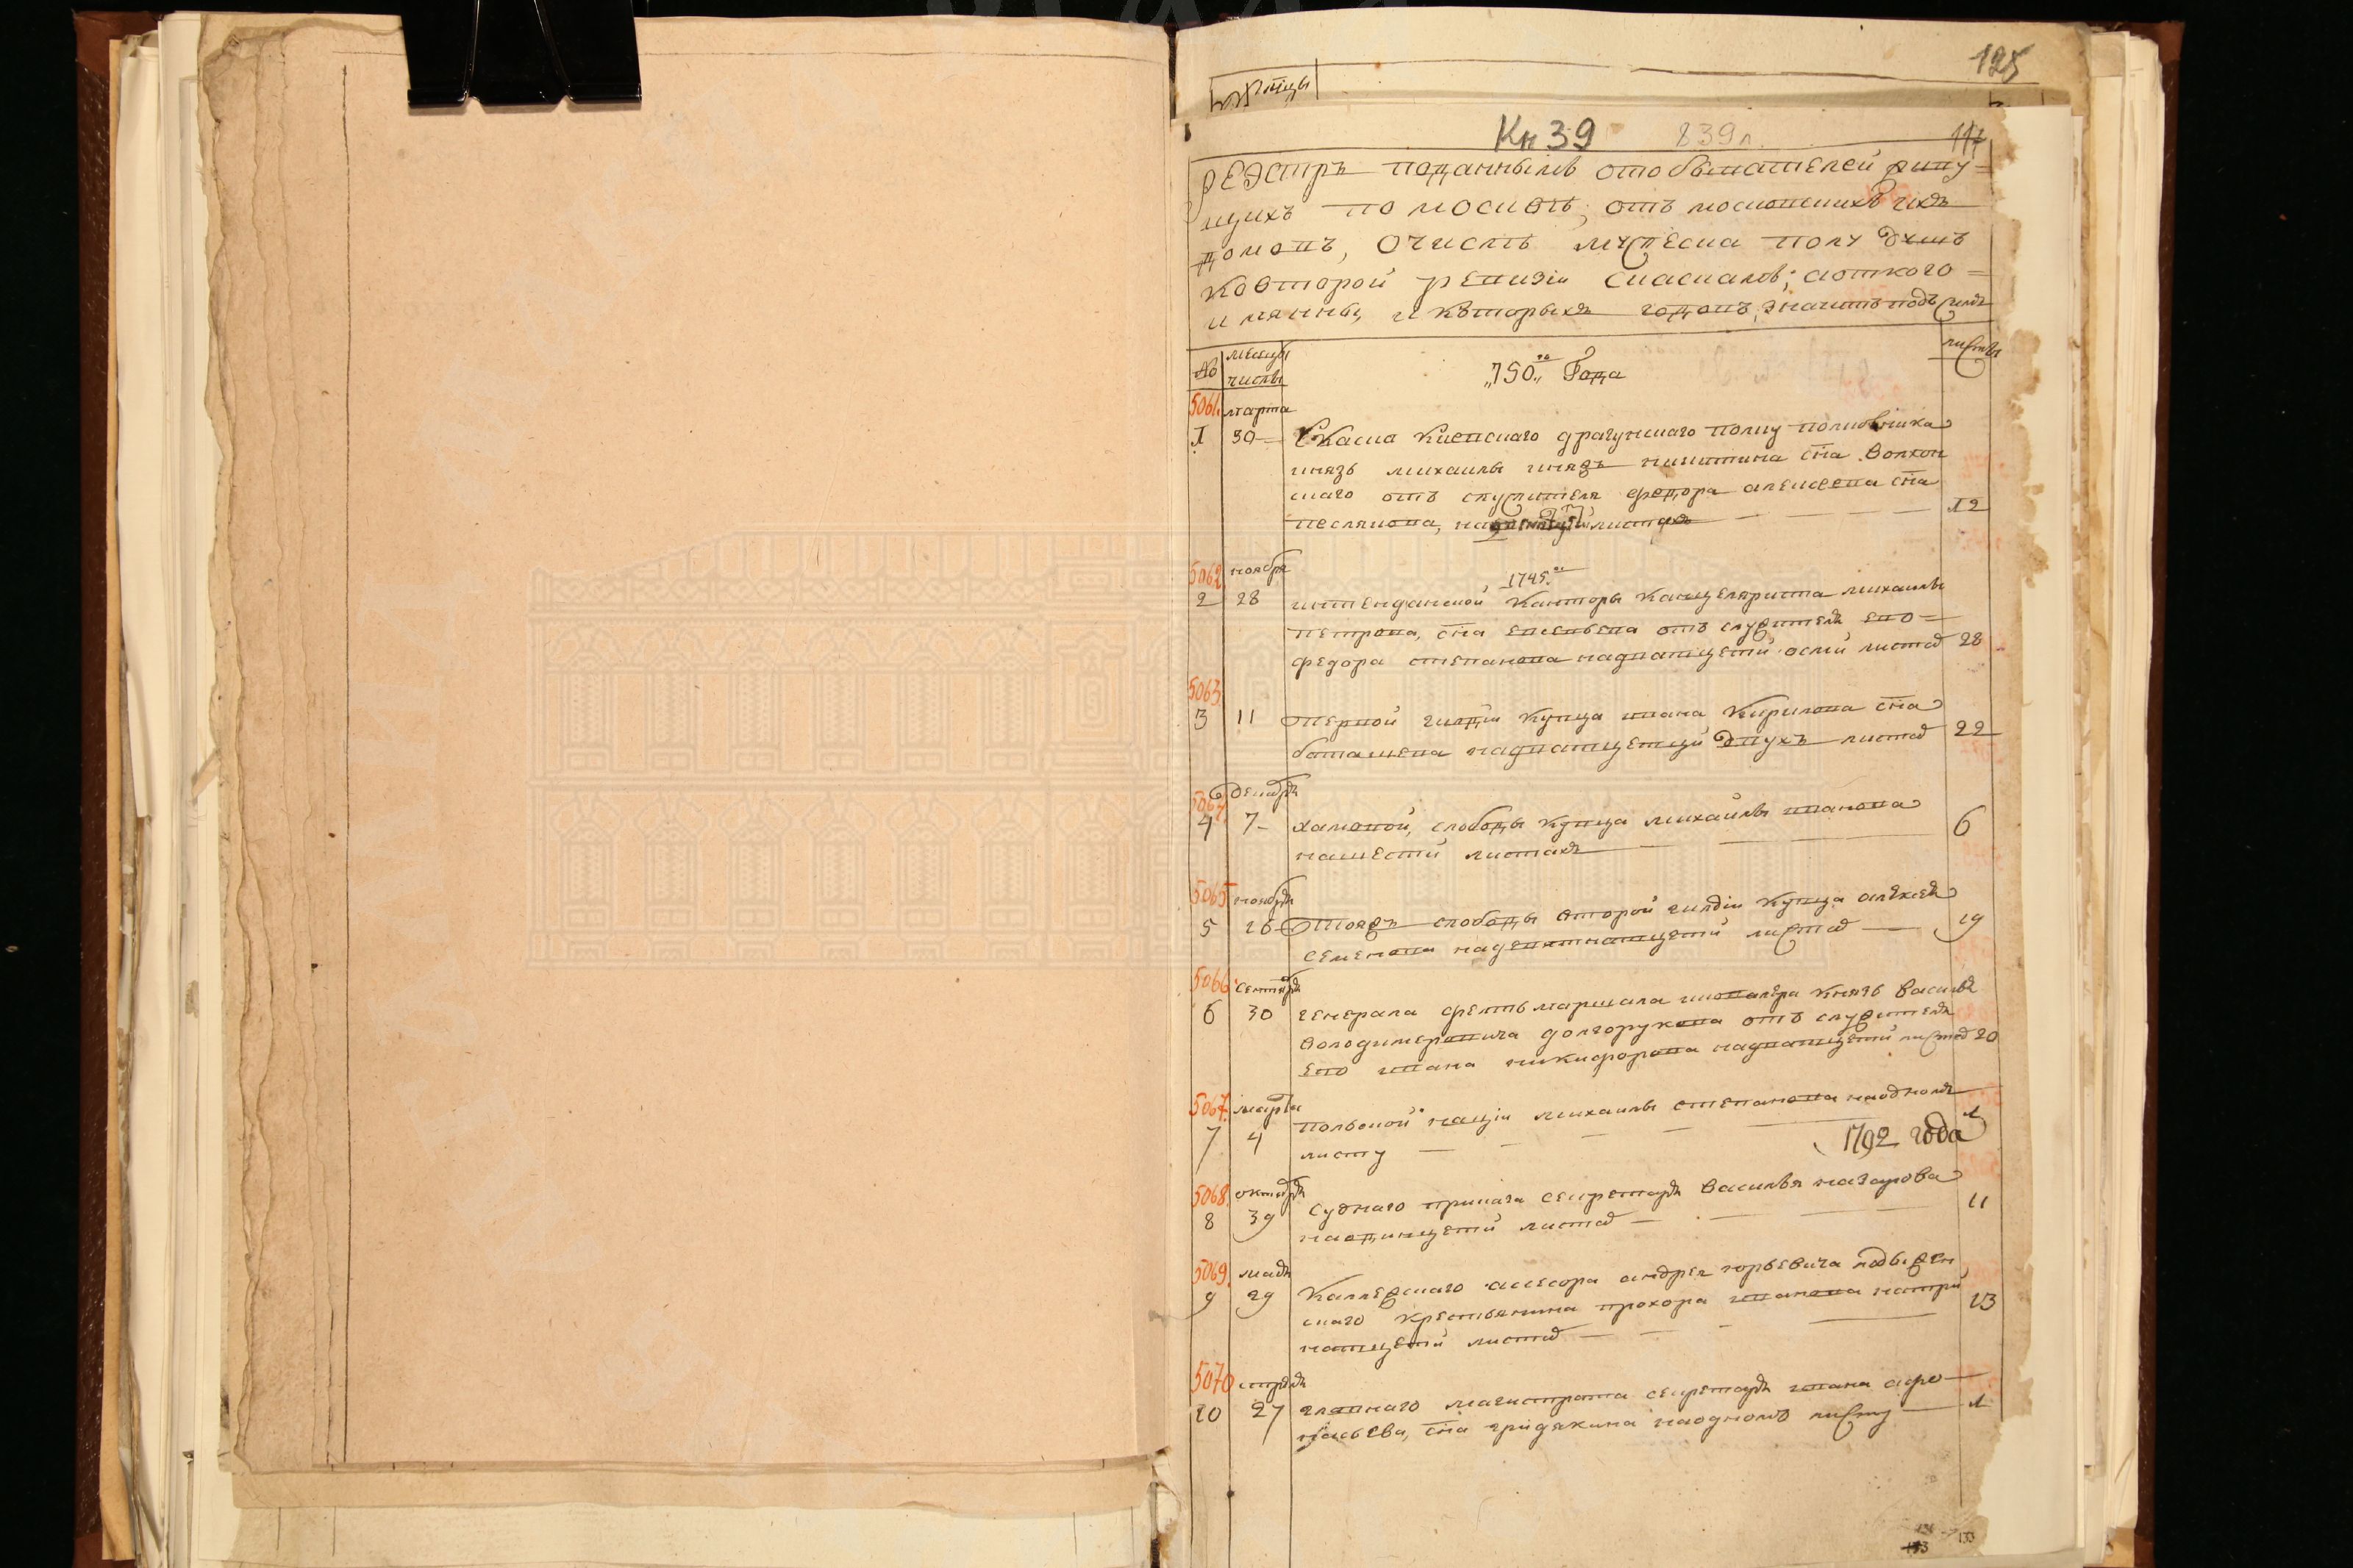 125
месяцы
Кн 39 839 л. 117
Реэстръ поданнымъ отобывателей иживу-
щихъ по москвѣ; отъ московскихъ ихъ
домовъ, очислѣ мужеска полу душъ
ковторой ревизіи скаскамъ; аоткого
имянны, икоторыхъ годовъ, значитъ подъ симъ
№ месецы числы листы
„750„ го Года
5061. марта
1 30 Скаска Киевского драгунского полку полковника
князь михаилы князь никитина сна волкон
ского отъ служителя федора алексеева сна
листахъ 12
5062 ноября
1745. го
2 28 интенданской канторы канцеляриста михаилы
петрова, сна евсевьева отъ служителя ево
федора степанова надватцети осми листах 28
5063
3 11 первой гилдіи купца ивана кирилова сна
баташева надватцети двухъ листах 22
5064 декабря
4 7 хамовной, слободы купца михаилы иванова
нашести листахъ 6
5065 ноября
5 26 слободы второй гилдіи купца алѣксея
семенова надевятнатцети листах 19
5066 сентября
6 30 генерала фелтьмаршала иковалѣра князь василья
володимеровича долгорукова отъ служителя
ево ивана никифорова надватцети листах 20
5067. марта
7 4 польской нацiи михаилы степанова наодномъ
листу 1
1792 года
5068. октября
8 39 суднаго приказа секретаря василья назарова
наодинцети листах 11
5069. маия
9 29 коллежскаго асесора андрея юрьевича
скаго крестьянина прохора иванова натри
натцети листах 13
5070
10 27 главнаго магистрата секретаря ивана афо-
насьева, сна гридякина наодномъ листу 1
133